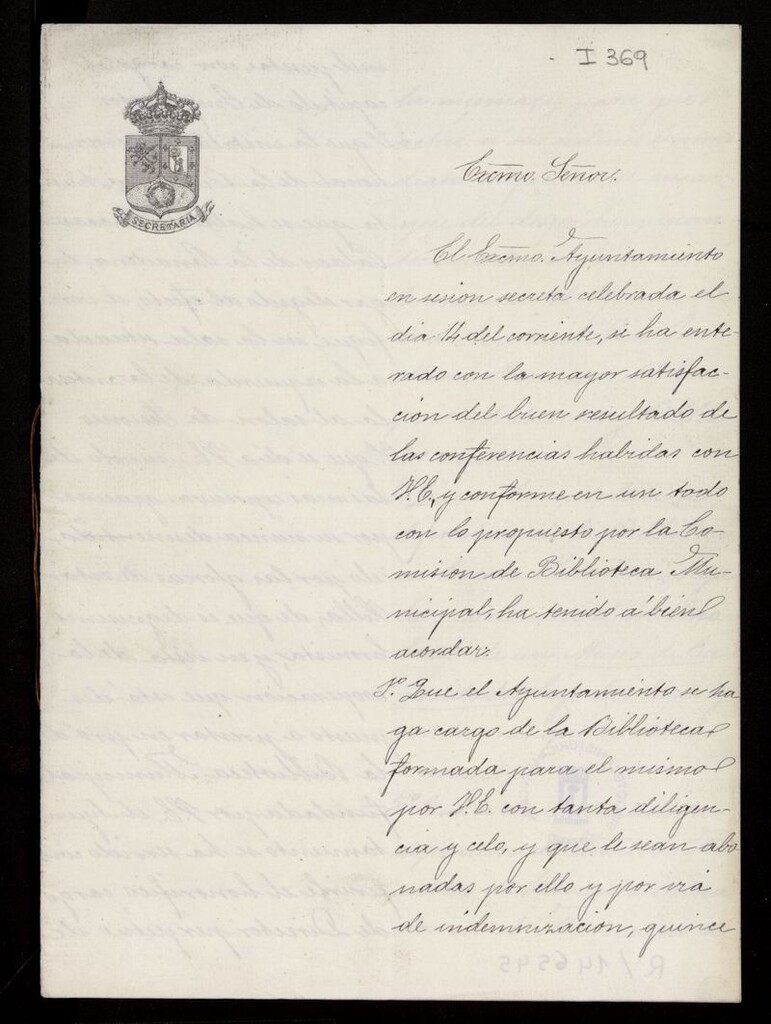 I 369
SECRETARIA
Excmo. Señor.
El Excmo. Ayuntamiento
en sesion secreta celebrada el
dia 14 del corriente, se ha ente-
rado con la mayor satisfac-
ción del buen resultado de
las conferencias habidas con
V.E., y conforme en un todo
con lo propuesto por la Co-
misión de Biblioteca Mu-
nicipal, ha tenido á bien
acordar:
1º Que el Ayuntamiento se ha
ga cargo de la Biblioteca
formada para el mismo
por V.E. con tanta diligen-
cia y celo, y que le sean abo
nadas por ello y por via
de indemnización, quince
R/146545